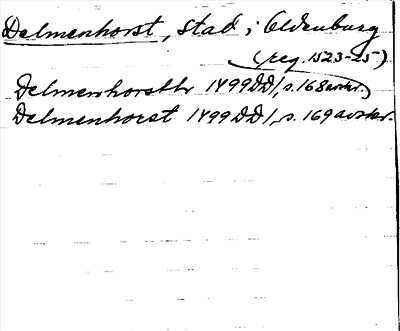 Delmenhorst, stad; Oldenburg
(reg. 1523-25)
Delmenhorsth 1499 DD1, s. 168 avskr.
Delmenhorst 1499 DD1, s. 169 avskr.